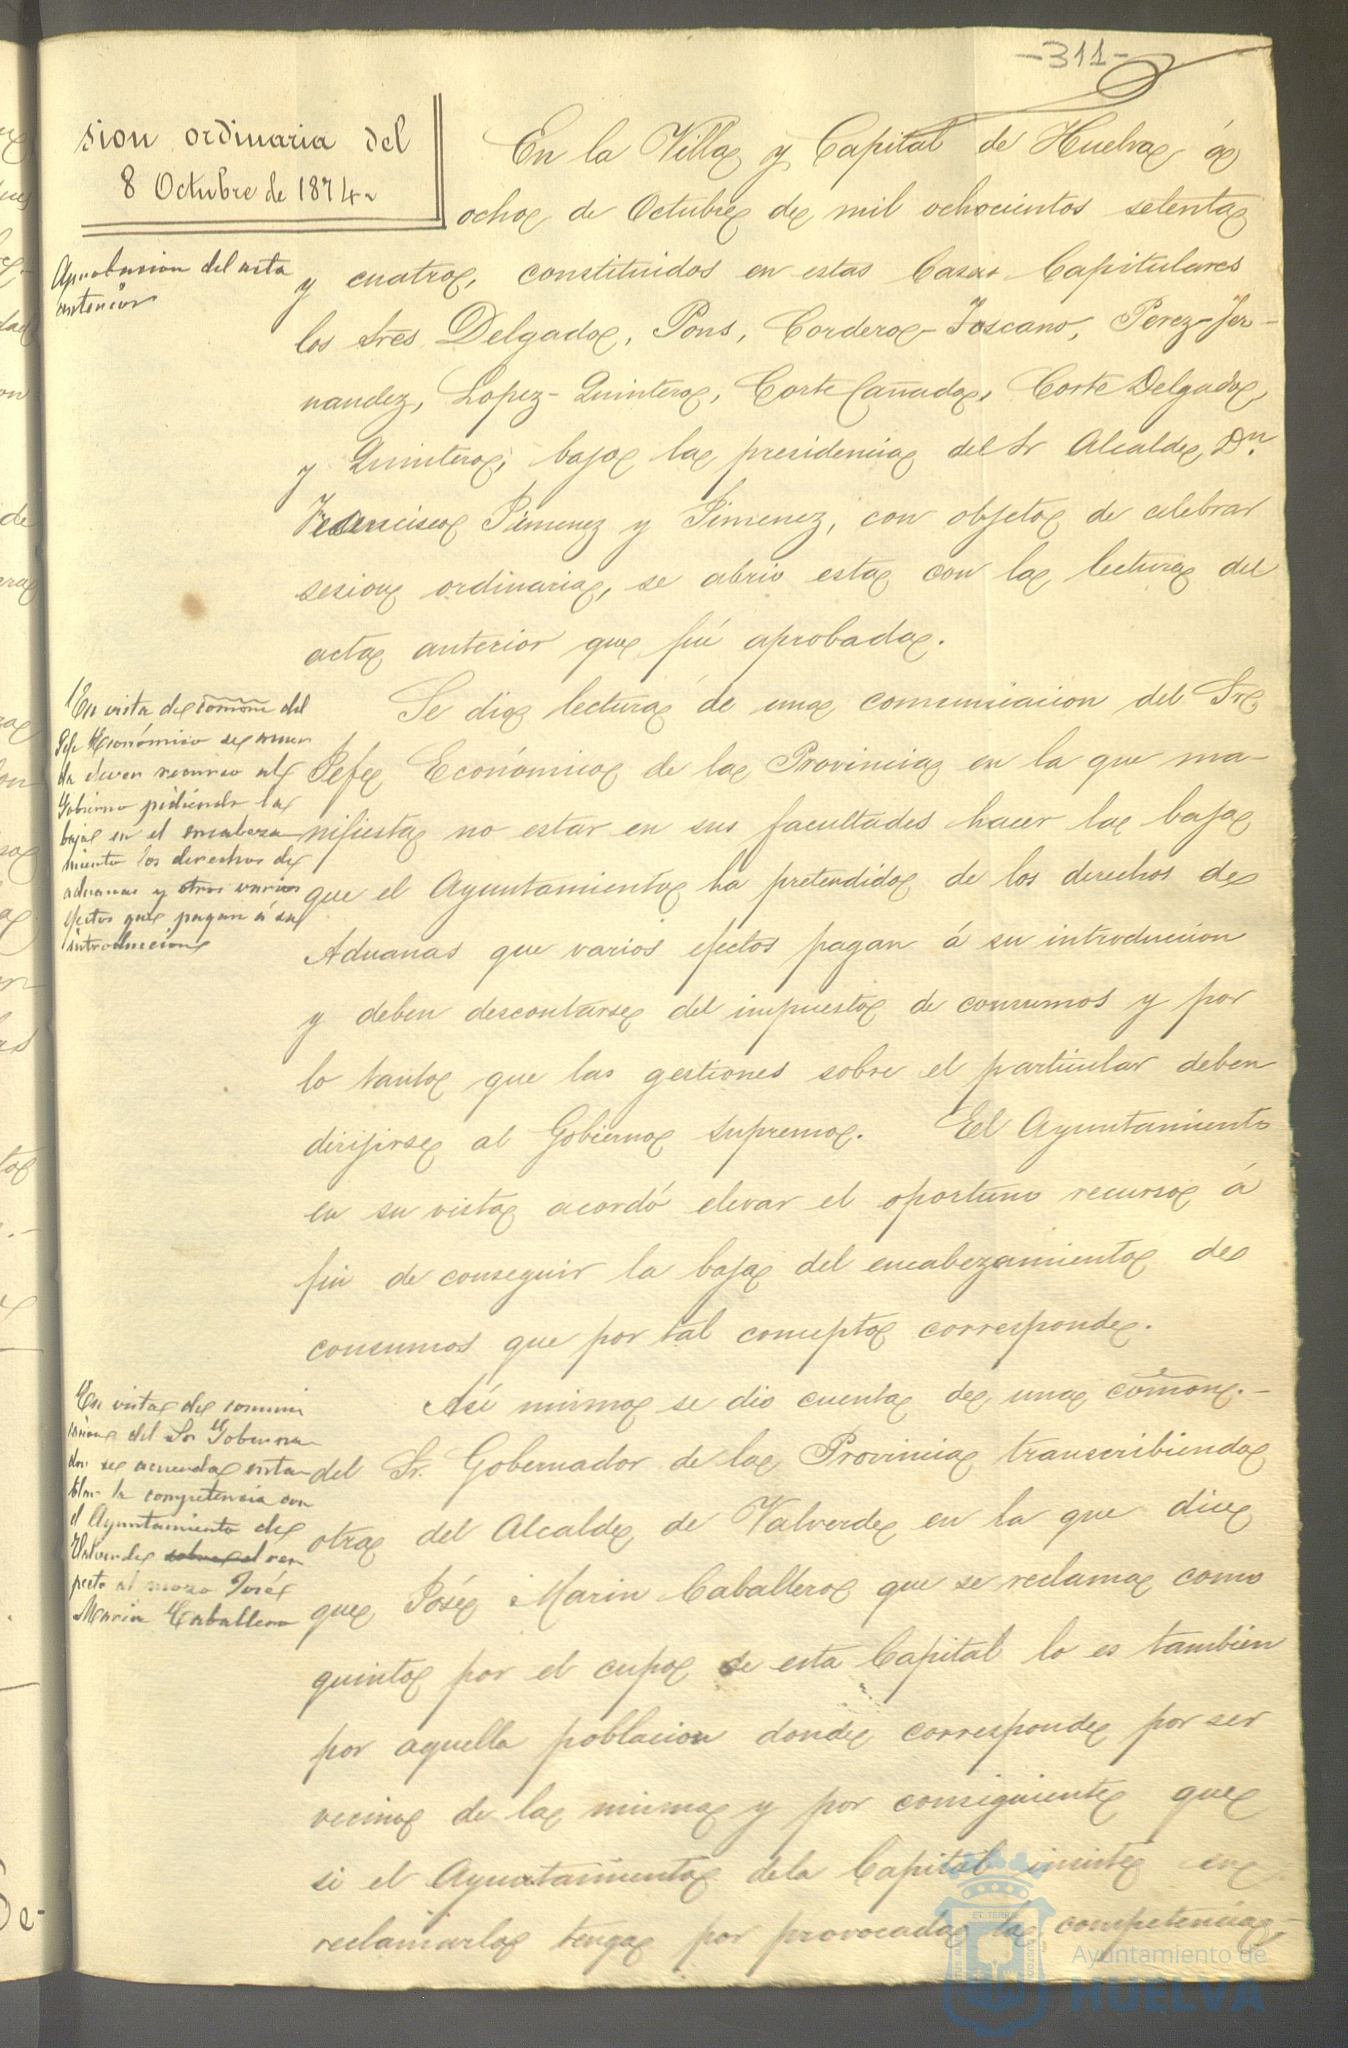 -311-
sion ordinaria del
8 Octubre de 1874
En la Villa y Capital de Huelva á
ocho de Octubre de mil ochocientos setenta
Aprobacion del acta
anterior
y cuatro, constituidos en estas Casas Capitulares
los Sres Delgado, Pons, Cordero-Toscano, Perez-Fer-
nandez, Lopez-Quintero, Corte Cañado, Corte Delgado,
y Quintero, bajo la presidencia del Sr Alcalde Dn.
Francisco Jimenez y Jimenez, con objeto de celebrar
sesion ordinaria, se abrio esta con la lectura del
acta anterior que fué aprobada.
En vista de comon del
Jefe Económico se acuer
da elevar recurso al
Gobierno pidiendo la
baja en el encabeza
miento los derechos de
aduanas y otros varios
efectos que pagan á su
introduccion
Se dio lectura de una comunicacion del Sr
Jefe Económico de la Provincia en la que ma-
nifiesta no estar en sus facultades hacer la baja
que el Ayuntamiento ha pretendido de los derechos de
Aduanas que varios efectos pagan á su introduccion
y deben descontarse del impuesto de consumos y por
lo tanto que las gestiones sobre el particular deben
dirijirse al Gobierno supremo. El Ayuntamiento
en su vista acordó elevar el oportuno recurso á
fin de conseguir la baja del encabezamiento de
consumos que por tal concepto corresponde.
En vista de comuni
cacion del Sr Goberna
dor se acuerda enta
blar la competencia con
el Ayuntamiento de
Valverde sobre el res
pecto al mozo José
Marin Caballero
Así mismo se dio cuenta de una comon.-
del Sr. Gobernador de la Provincia transcribiendo
otra del Alcalde de Valverde en la que dice
que José Marin Caballero que se reclama como
quinto por el cupo de esta Capital lo es tambien
por aquella poblacion donde corresponde por ser
vecino de la misma y por consiguiente que
si el Ayuntamiento dela Capital insiste en
reclamarlo tenga por provocada la competencia,
Ayuntamiento de
HUELVA